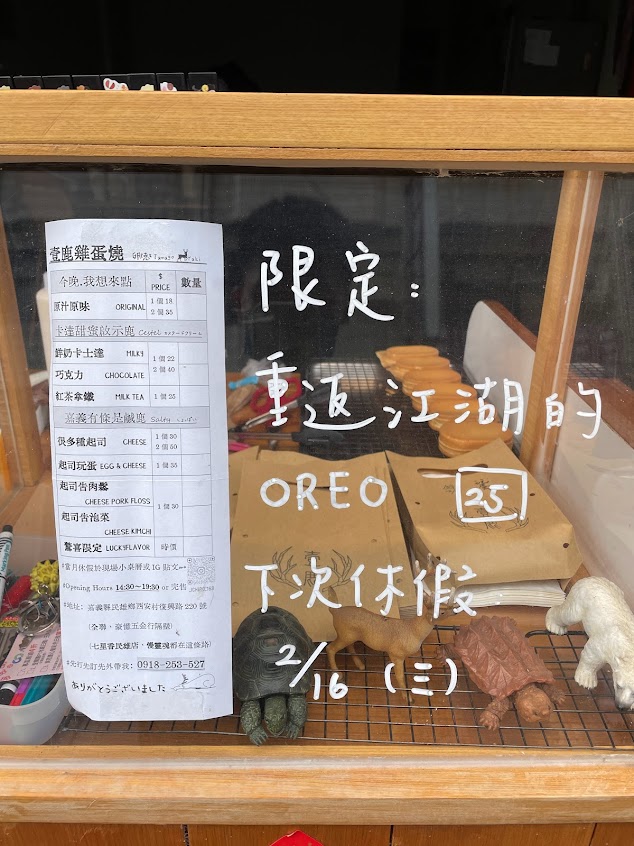 壹鹿雞蛋燒
今晚,我想來點 $ PRICE 數量
原汁原味 ORIGINAL 1個18 2個35
卡達甜蜜啟示鹿
鮮奶卡士達 MILKY 1個22 2個40
巧克力 CHOCOLATE
紅茶拿鐵 MILK TEA 1個25
嘉義有條是鹹鹿 Salty
很多種起司 CHEESE 1個30 2個50
起司玩蛋 EGG & CHEESE 1個35
起司告肉鬆 CHEESE PORK FLOSS 1個30
起司告泡菜 CHEESE KIMCHI
驚喜限定 LUCKYFLAVOR 時價
#當月休假於現場小桌曆或IG貼文
#Opening Hours 14:30~19:30 or 完售
#地址: 嘉義縣民雄鄉西安村復興路220號
(全聯、豪億五金行隔壁)
#先打先訂先外帶我: 0918-253-527
ありがとうございました
限定:
重返江湖的
OREO 25
下次休假
2/16 (三)